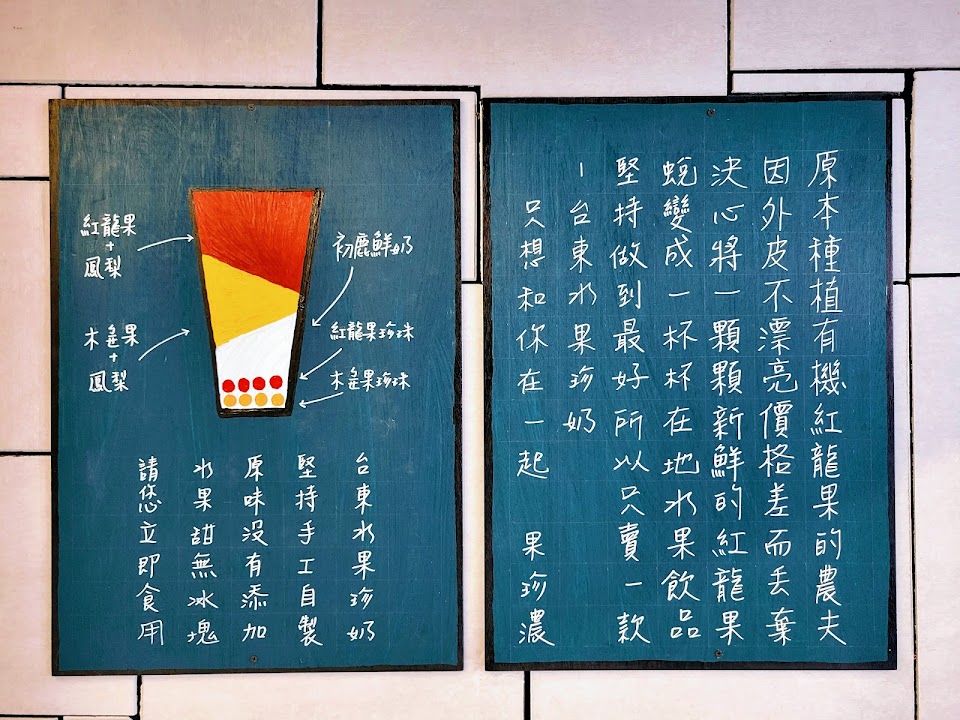 原本種植有機紅龍果的農夫
因外皮不漂亮價格差而丟棄
決心將一顆顆新鮮的紅龍果
蛻變成一杯杯在地水果飲品
堅持做到最好所以只賣一款
－台東水果珍奶
只想和你在一起 果珍濃
紅龍果
+
鳳梨
+
鳳梨
初鹿鮮奶
紅龍果珍珠
珍珠
台東水果珍奶
堅持手工自製
原味沒有添加
水果甜無冰塊
請您立即食用